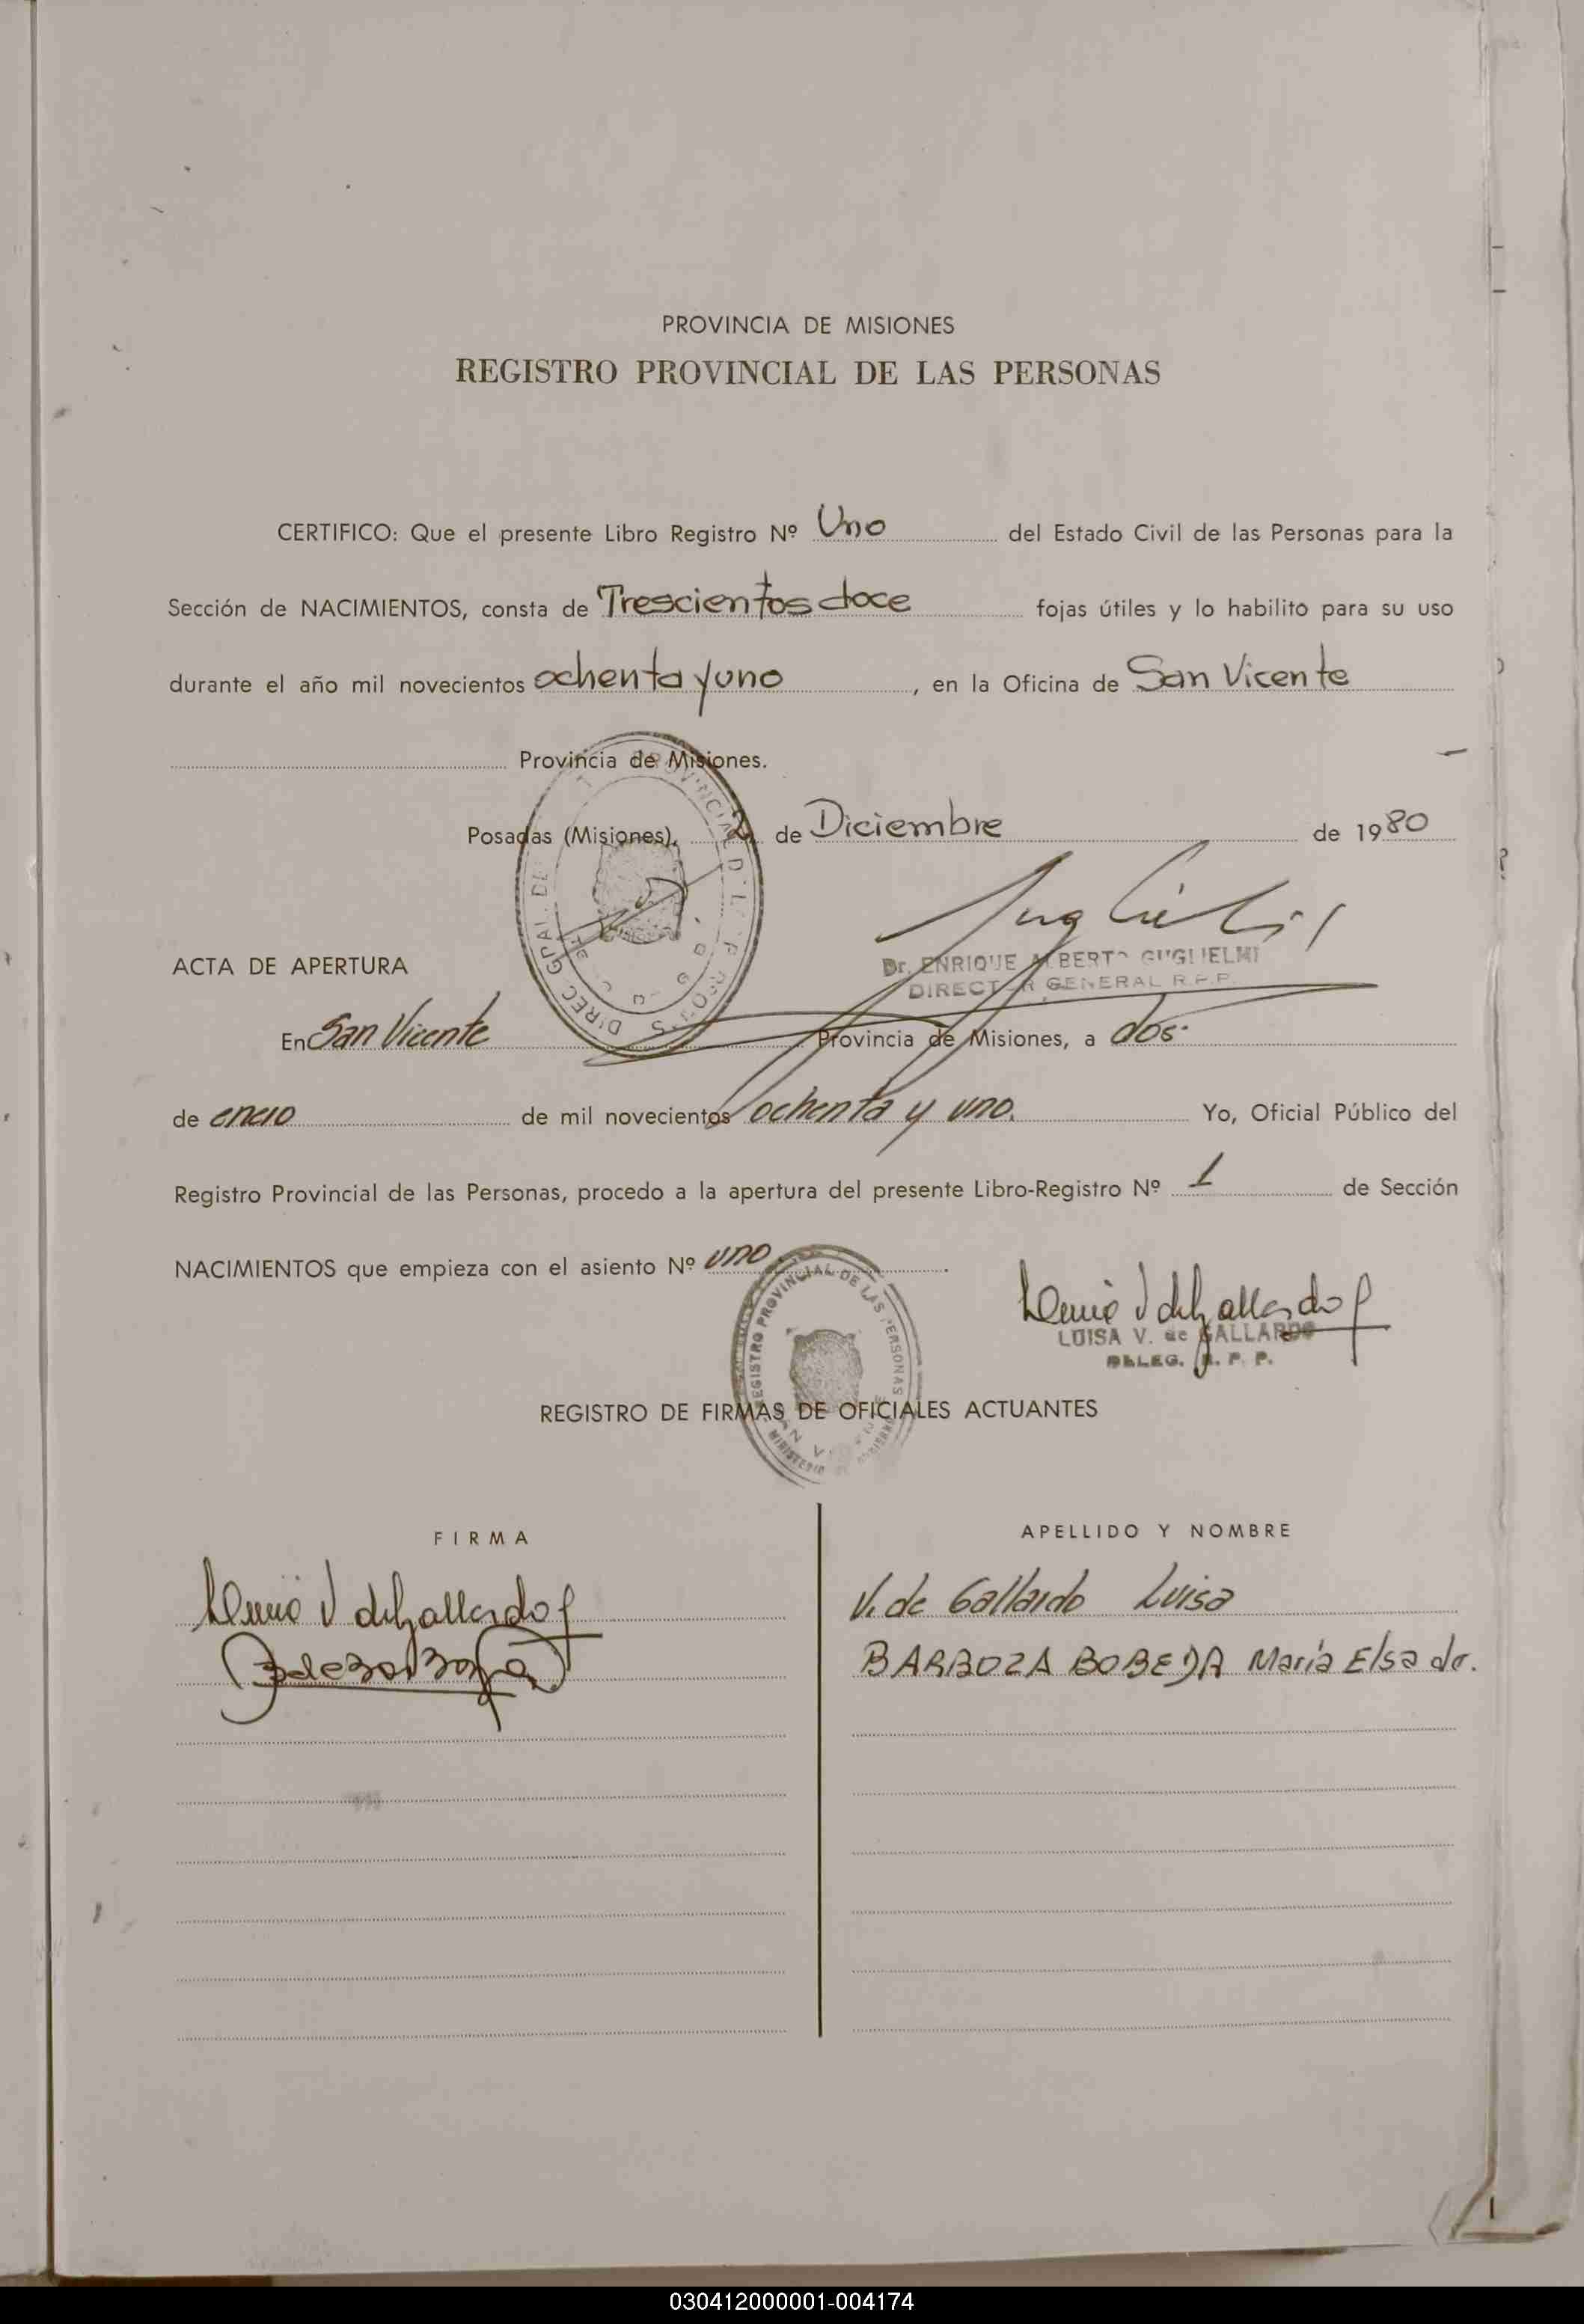 PROVINCIA DE MISIONES
REGISTRO PROVINCIAL DE LAS PERSONAS
CERTIFICO: Que el presente Libro Registro Nº Uno del Estado Civil de las Personas para la
Sección de NACIMIENTOS, consta de Trescientos doce fojas útiles y lo habilito para su uso
durante el año mil novecientos ochenta y uno, en la Oficina de San Vicente
Provincia de Misiones.
Posadas (Misiones), de Diciembre de 1980
Dr. ENRIQUE ALBERTO GUGLIELMI
DIRECTOR GENERAL R.P.P.
ACTA DE APERTURA
En San Vicente Provincia de Misiones, a dos
de enero de mil novecientos ochenta y uno. Yo, Oficial Público del
Registro Provincial de las Personas, procedo a la apertura del presente Libro-Registro Nº 1 de Sección
NACIMIENTOS que empieza con el asiento Nº uno.
LUISA V. de GALLARDO
DELEG. R. P. P.
REGISTRO PROVINCIAL DE LAS PERSONAS
REGISTRO DE FIRMAS DE OFICIALES ACTUANTES
FIRMA APELLIDO Y NOMBRE
V. de Gallardo Luisa
BARBOZA BOBEDA María Elsa de.
1
030412000001-004174